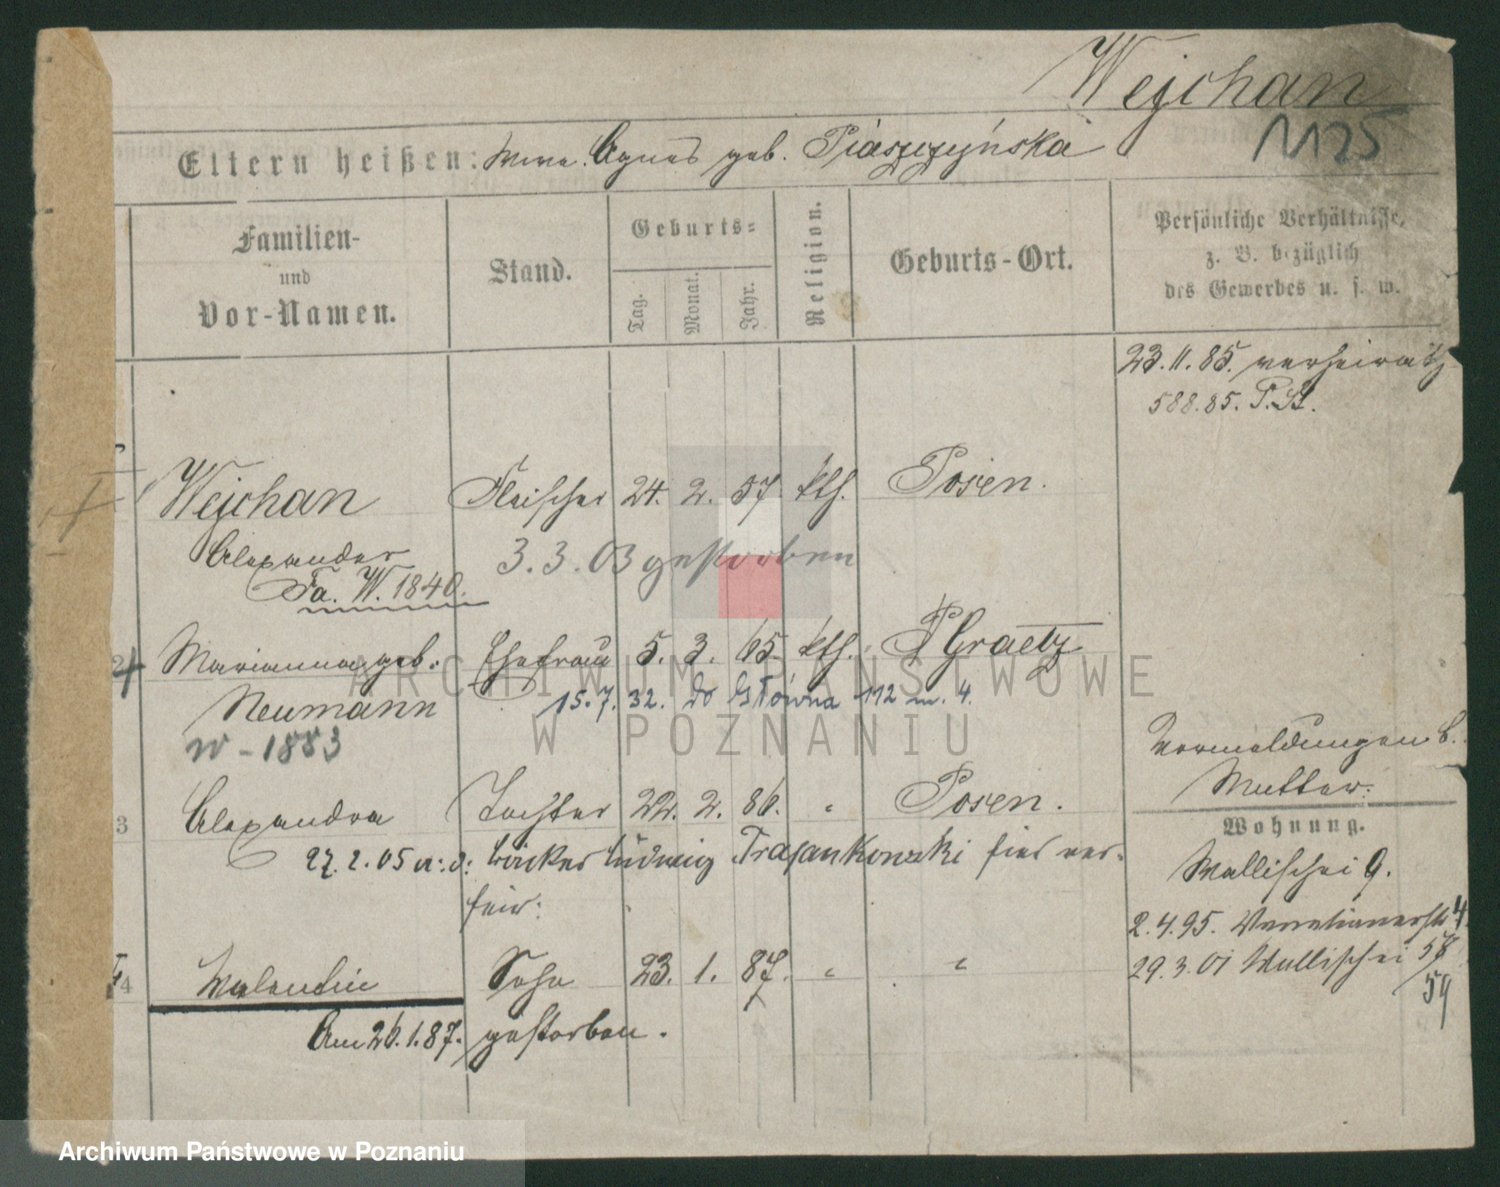 Wejchan
1125
Eltern heißen: Wwe. Agnes geb. Piaszczyńska
Familien- und Vor-Namen.
Stand.
Geburts-
Tag.
Monat.
Jahr.
Religion.
Geburts-Ort.
Persönliche Verhältnisse,
z. B. bezüglich
des Gewerbes u. s. w.
23.11.85. verheirath
588.85. P.St.
Wejchan Fleischer 24. 2. 57 kth. Posen.
Alexander 3.3.03 gestorben
Fa. W. 1840.
2 Marianna geb. Ehefrau 5. 3. 65 kth. Graetz
Neumann 15.7.32. do Główna 112 m. 4.
w - 1883
Vermeldungen b.
Mutter.
3 Alexandra Tochter 22. 2. 86. " Posen.
Wohnung.
27.2.05 a. d. Bäcker Ludwig Trajankowski hier ver-
heir:
Wallischei 9.
2.4.95. Venetianerstr 4
29.3.01 Wallischei 58/59
4 Valentin Sohn 23. 1. 87. " "
Am 26.1.87. gestorben.
ARCHIWUM PAŃSTWOWE
W POZNANIU
Archiwum Państwowe w Poznaniu